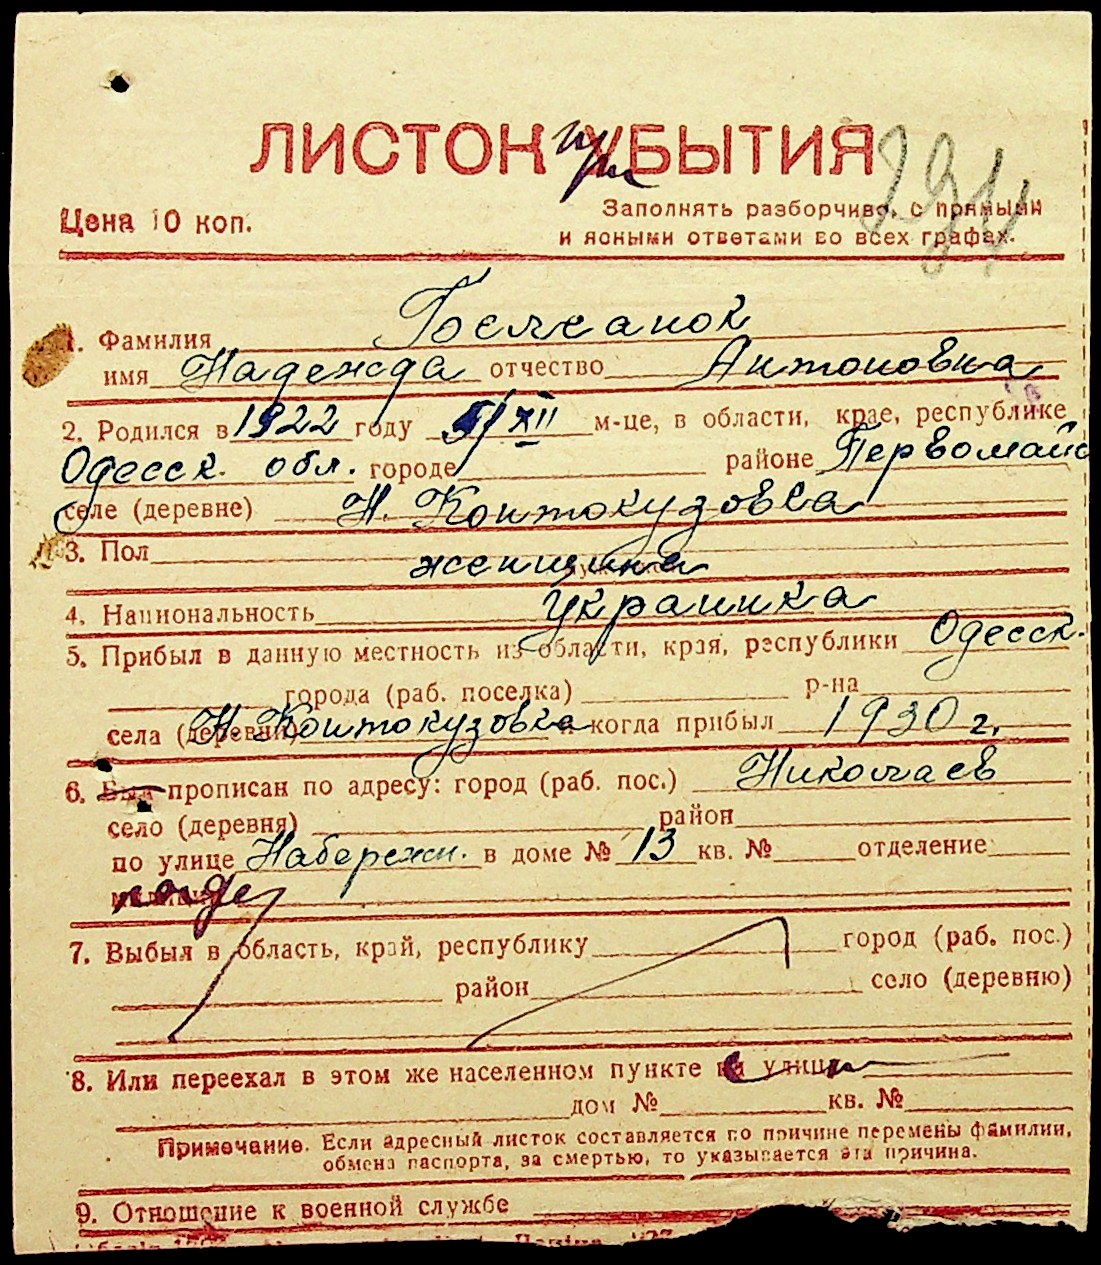 ЛИСТОК УБЫТИЯ
при
Цена 10 коп.
Заполнять разборчиво, с прямыми
и ясными ответами во всех графах.
1. Фамилия
имя Надежда отчество Антоновна
2. Родился в 1922 году 5/XII м-це, в области, крае, республике
Одесск. обл. городе районе Первомайс
селе (деревне) Н. Контокузовка
3. Пол женщина
4. Национальность украинка
5. Прибыл в данную местность из области, края, республики Одесск.
города (раб. поселка) р-на
села (деревни) Н. Контокузовка и когда прибыл 1930 г.
6. Был прописан по адресу: город (раб. пос.) Николаев
село (деревня) район
по улице Набережн. в доме № 13 кв. № отделение
милиции
7. Выбыл в область, край, республику город (раб. пос.)
район село (деревню)
8. Или переехал в этом же населенном пункте на улицу
дом № кв. №
Примечание. Если адресный листок составляется по причине перемены фамилии,
обмена паспорта, за смертью, то указывается эта причина.
9. Отношение к военной службе